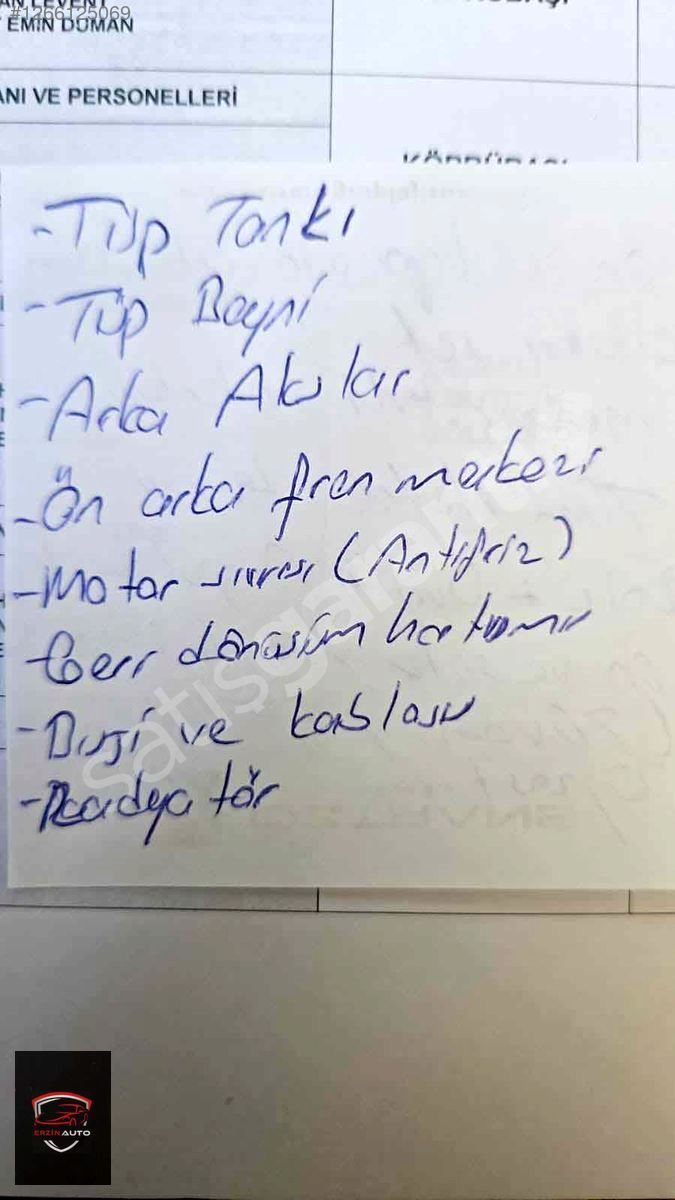 #1266125069
EMİN DUMAN
ANI VE PERSONELLERİ
-Tüp Tankı
-Tüp Beyni
-Arka Akslar
-Ön arka fren merkezi
-Motor sıvısı (Antifiriz)
-Geri dönüşüm hortumu
-Buji ve kablosu
-Radyatör
satışgaranti
ERZİN AUTO